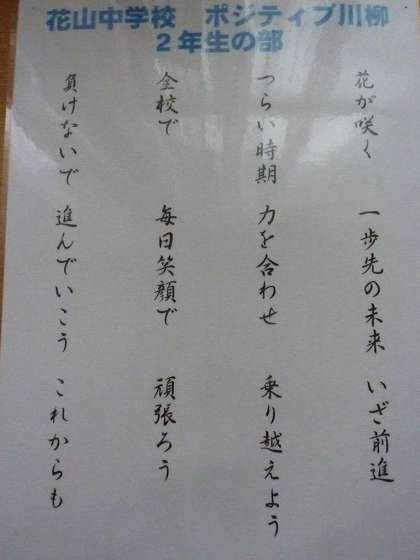 花山中学校　ポジティブ川柳
２年生の部
花が咲く　一歩先の未来　いざ前進
つらい時期　力を合わせ　乗り越えよう
全校で　毎日笑顔で　頑張ろう
負けないで　進んでいこう　これからも